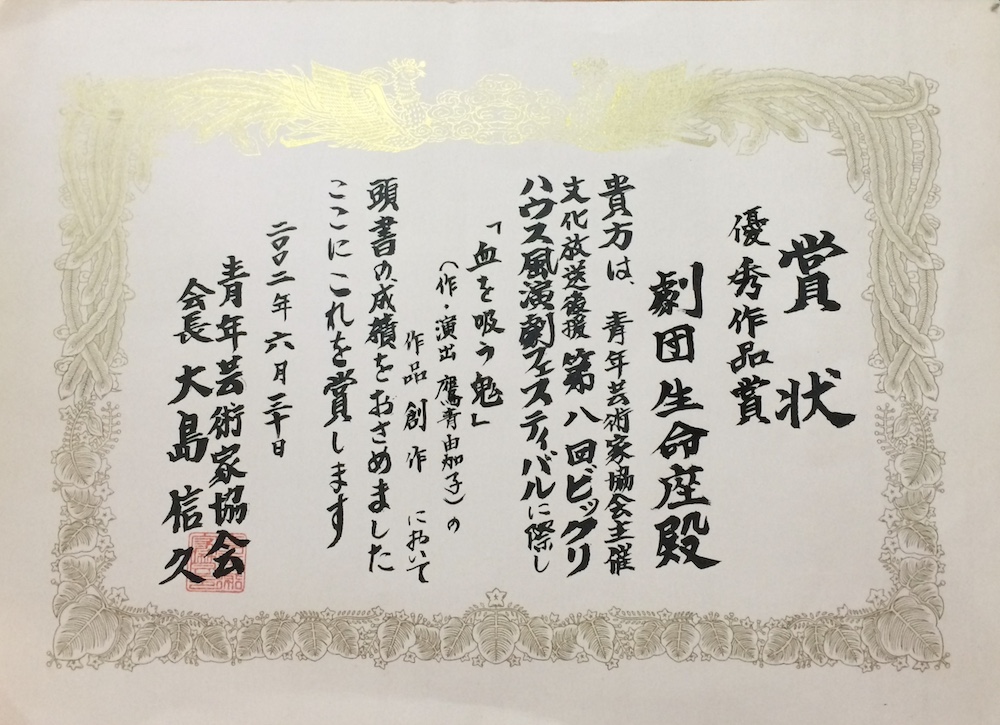 賞状
優秀作品賞
劇団生命座殿
貴方は、青年芸術家協会主催
文化放送後援 第八回ビックリ
ハウス風演劇フェスティバルに際し
「血を吸う鬼」
(作・演出 鷹青由加子)の
作品創作 において
頭書の成績をおさめました
ここにこれを賞します
二〇〇二年六月三十日
青年芸術家協会
会長 大島信久